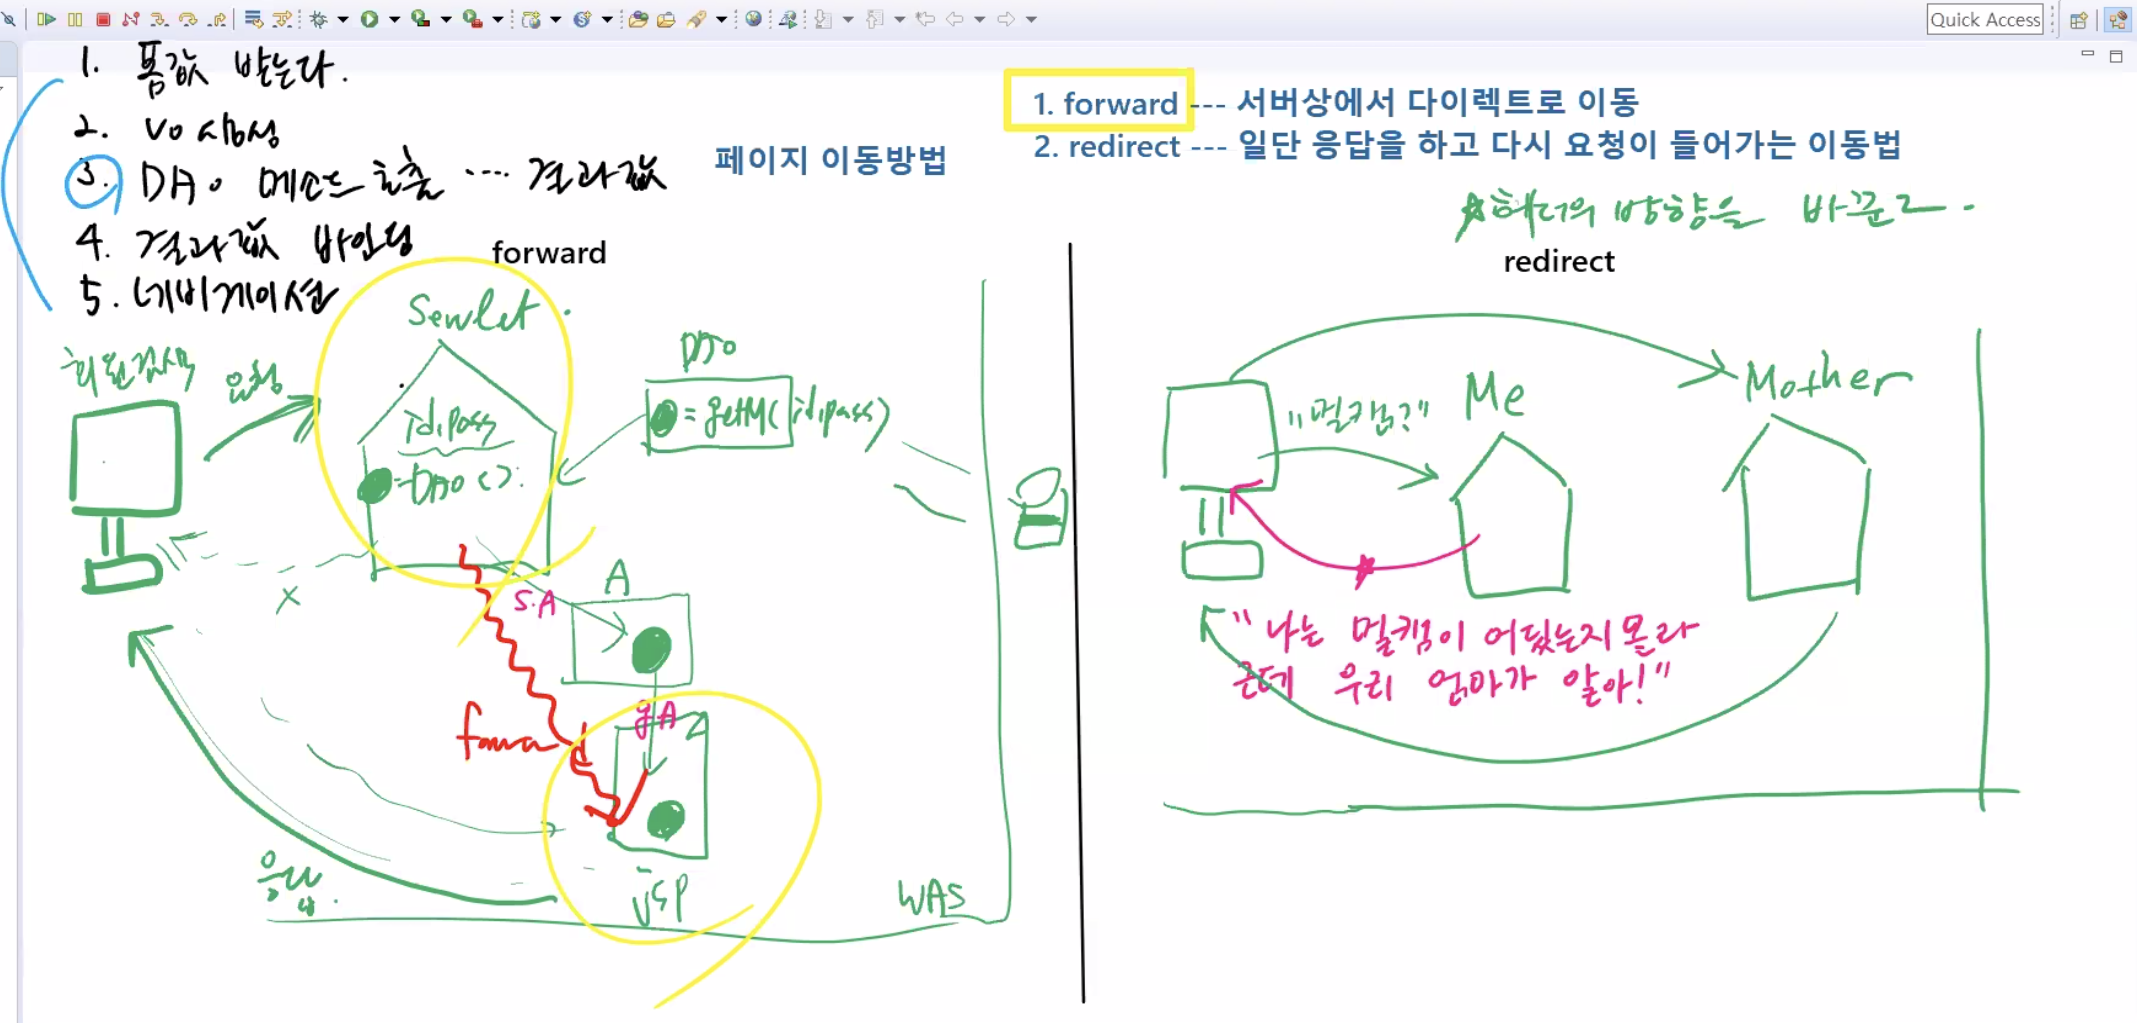 Quick Access
1. 폼값 받는다.
2. VO 생성
3. DAO 메소드 호출 ... 결과값
4. 결과값 바인딩
5. 네비게이션
페이지 이동방법
1. forward --- 서버상에서 다이렉트로 이동
2. redirect --- 일단 응답을 하고 다시 요청이 들어가는 이동법
★헤더의 방향을 바꾼고.
forward
Servlet.
회원검색
요청
id.pass
=DAO().
DAO
=getM(id.pass)
X
S.A
A
forward
gA
JSP
응답.
WAS
redirect
"멀캠?"
Me
Mother
"나는 멀캠이 어딨는지 몰라
근데 우리 엄마가 알아!"